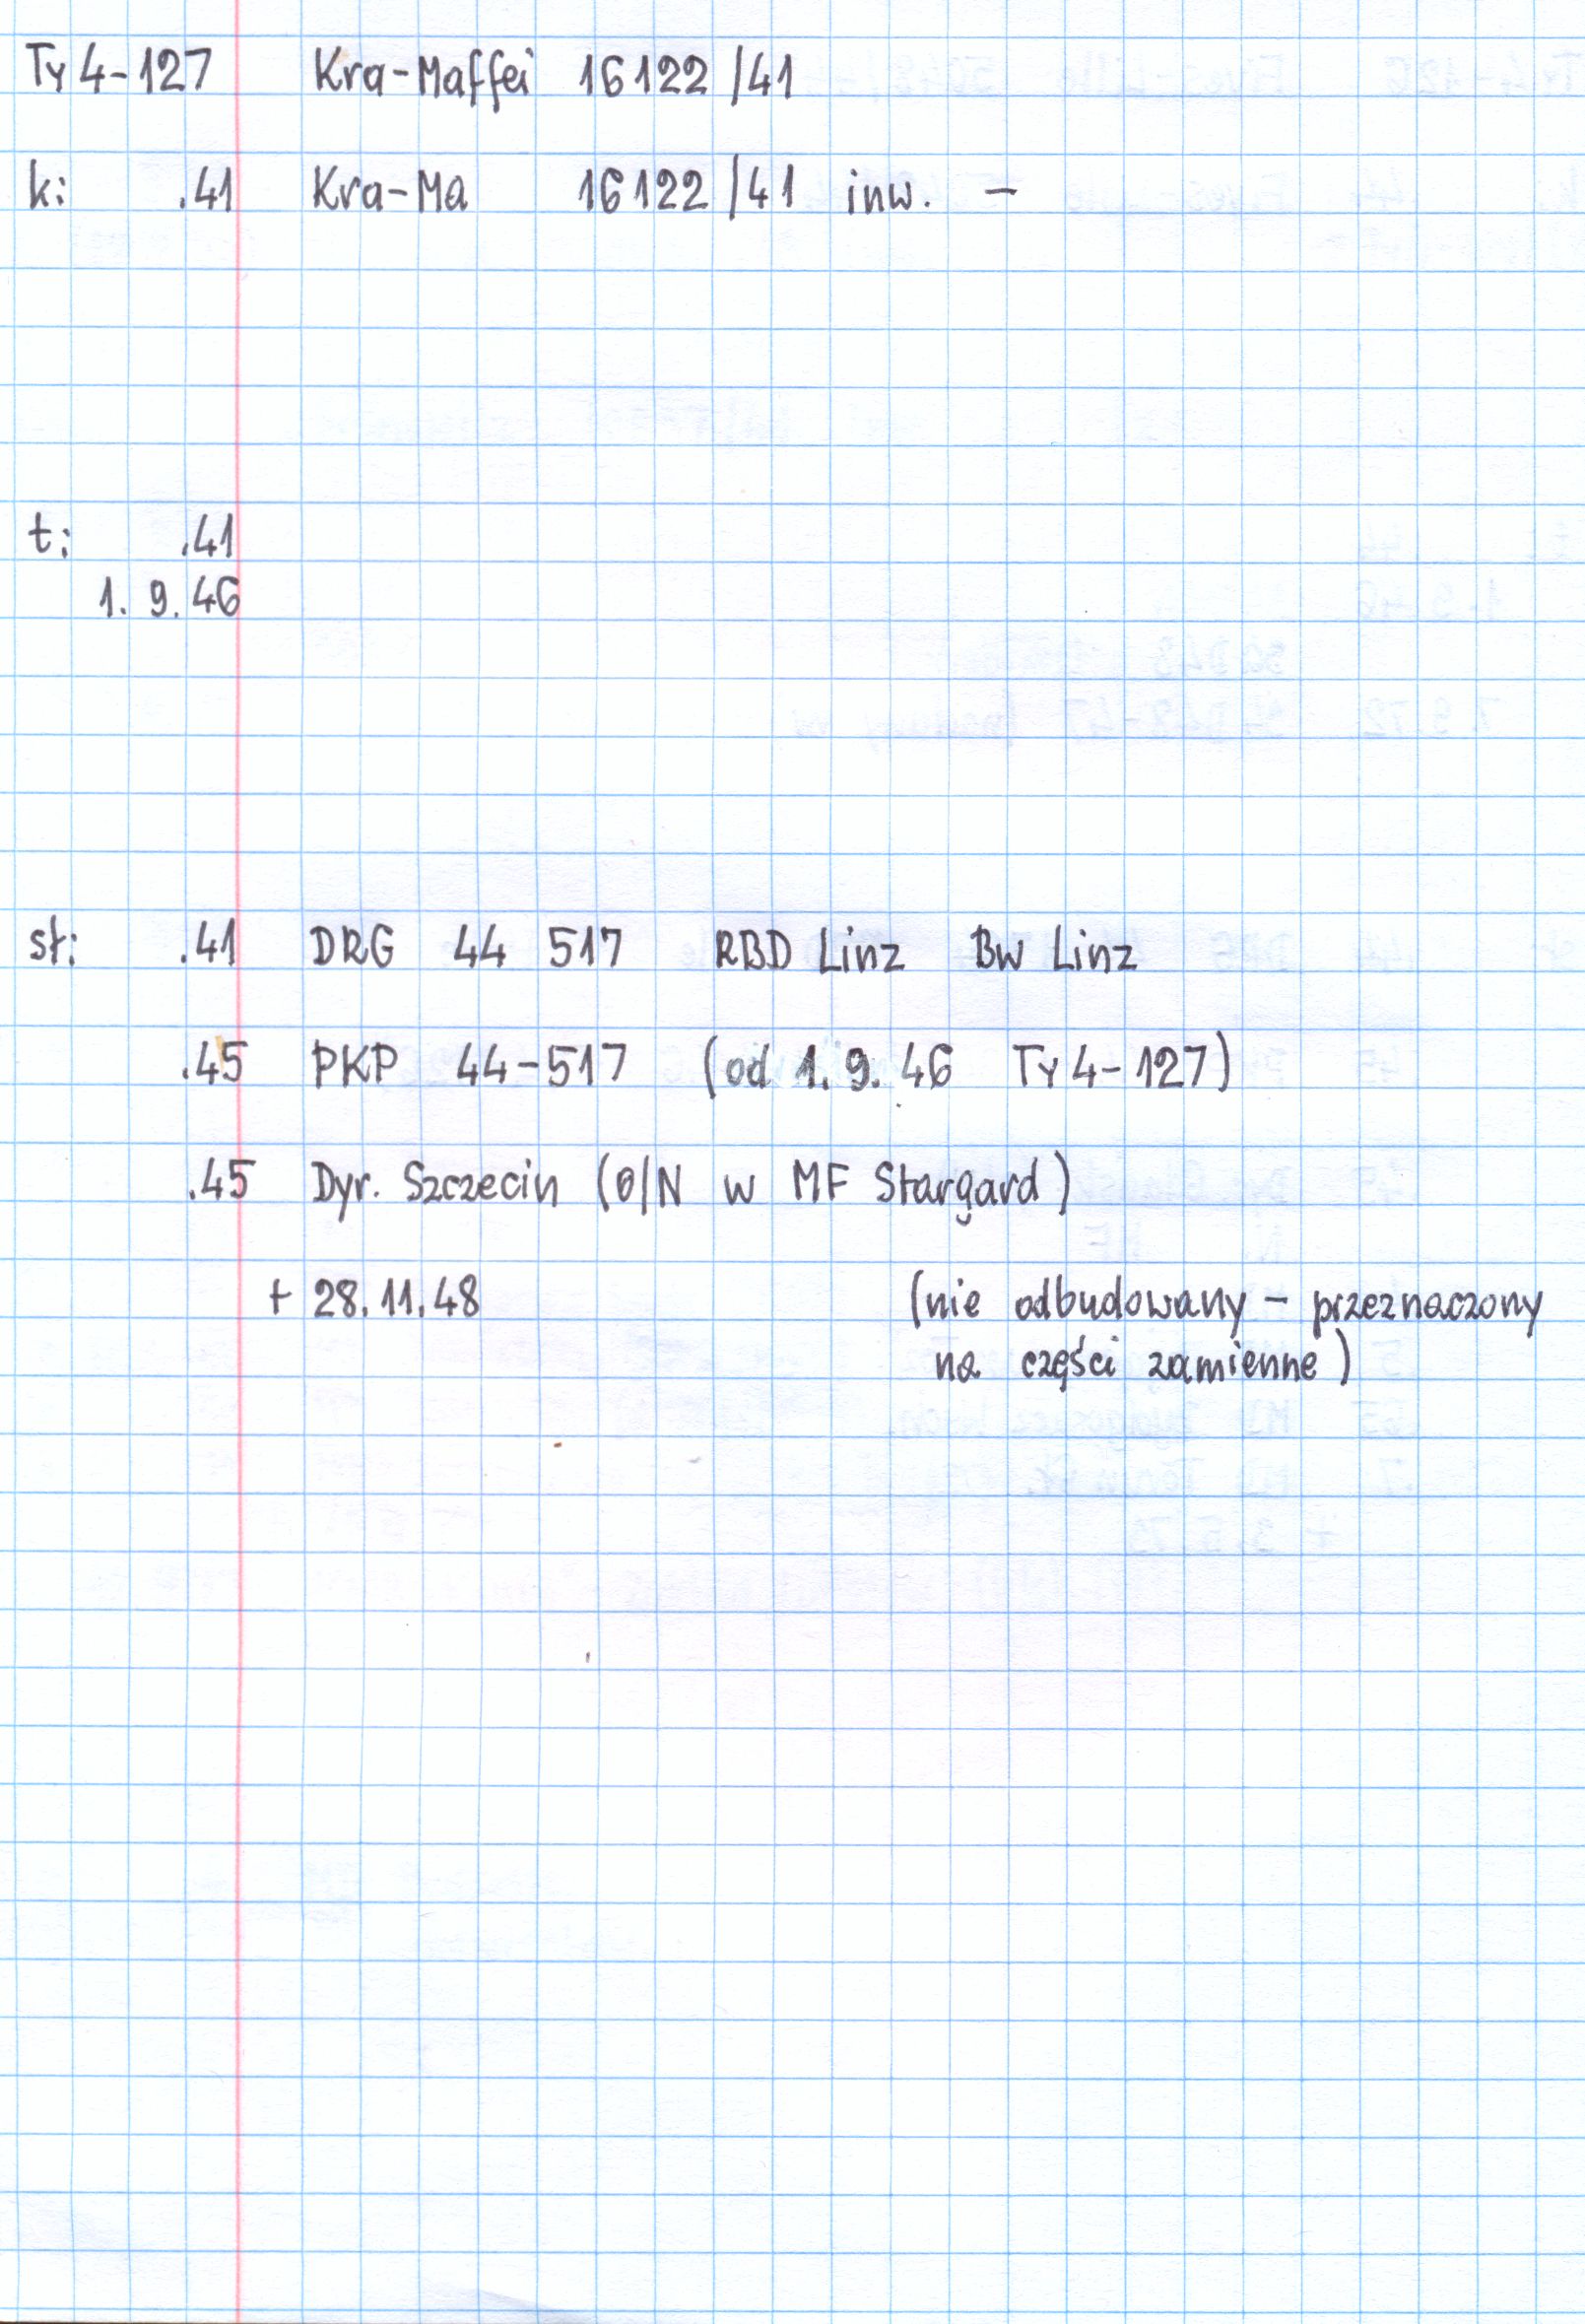 Ty4-127 Kra-Maffei 16122/41
k: .41 Kra-Ma 16122/41 inw. –
t: .41
1. 9. 46
st: .41 DRG 44 517 RBD Linz Bw Linz
.45 PKP 44-517 (od 1. 9. 46 Ty4-127)
.45 Dyr. Szczecin (O/N w MF Stargard)
+ 28.11.48 (nie odbudowany – przeznaczony
na części zamienne)